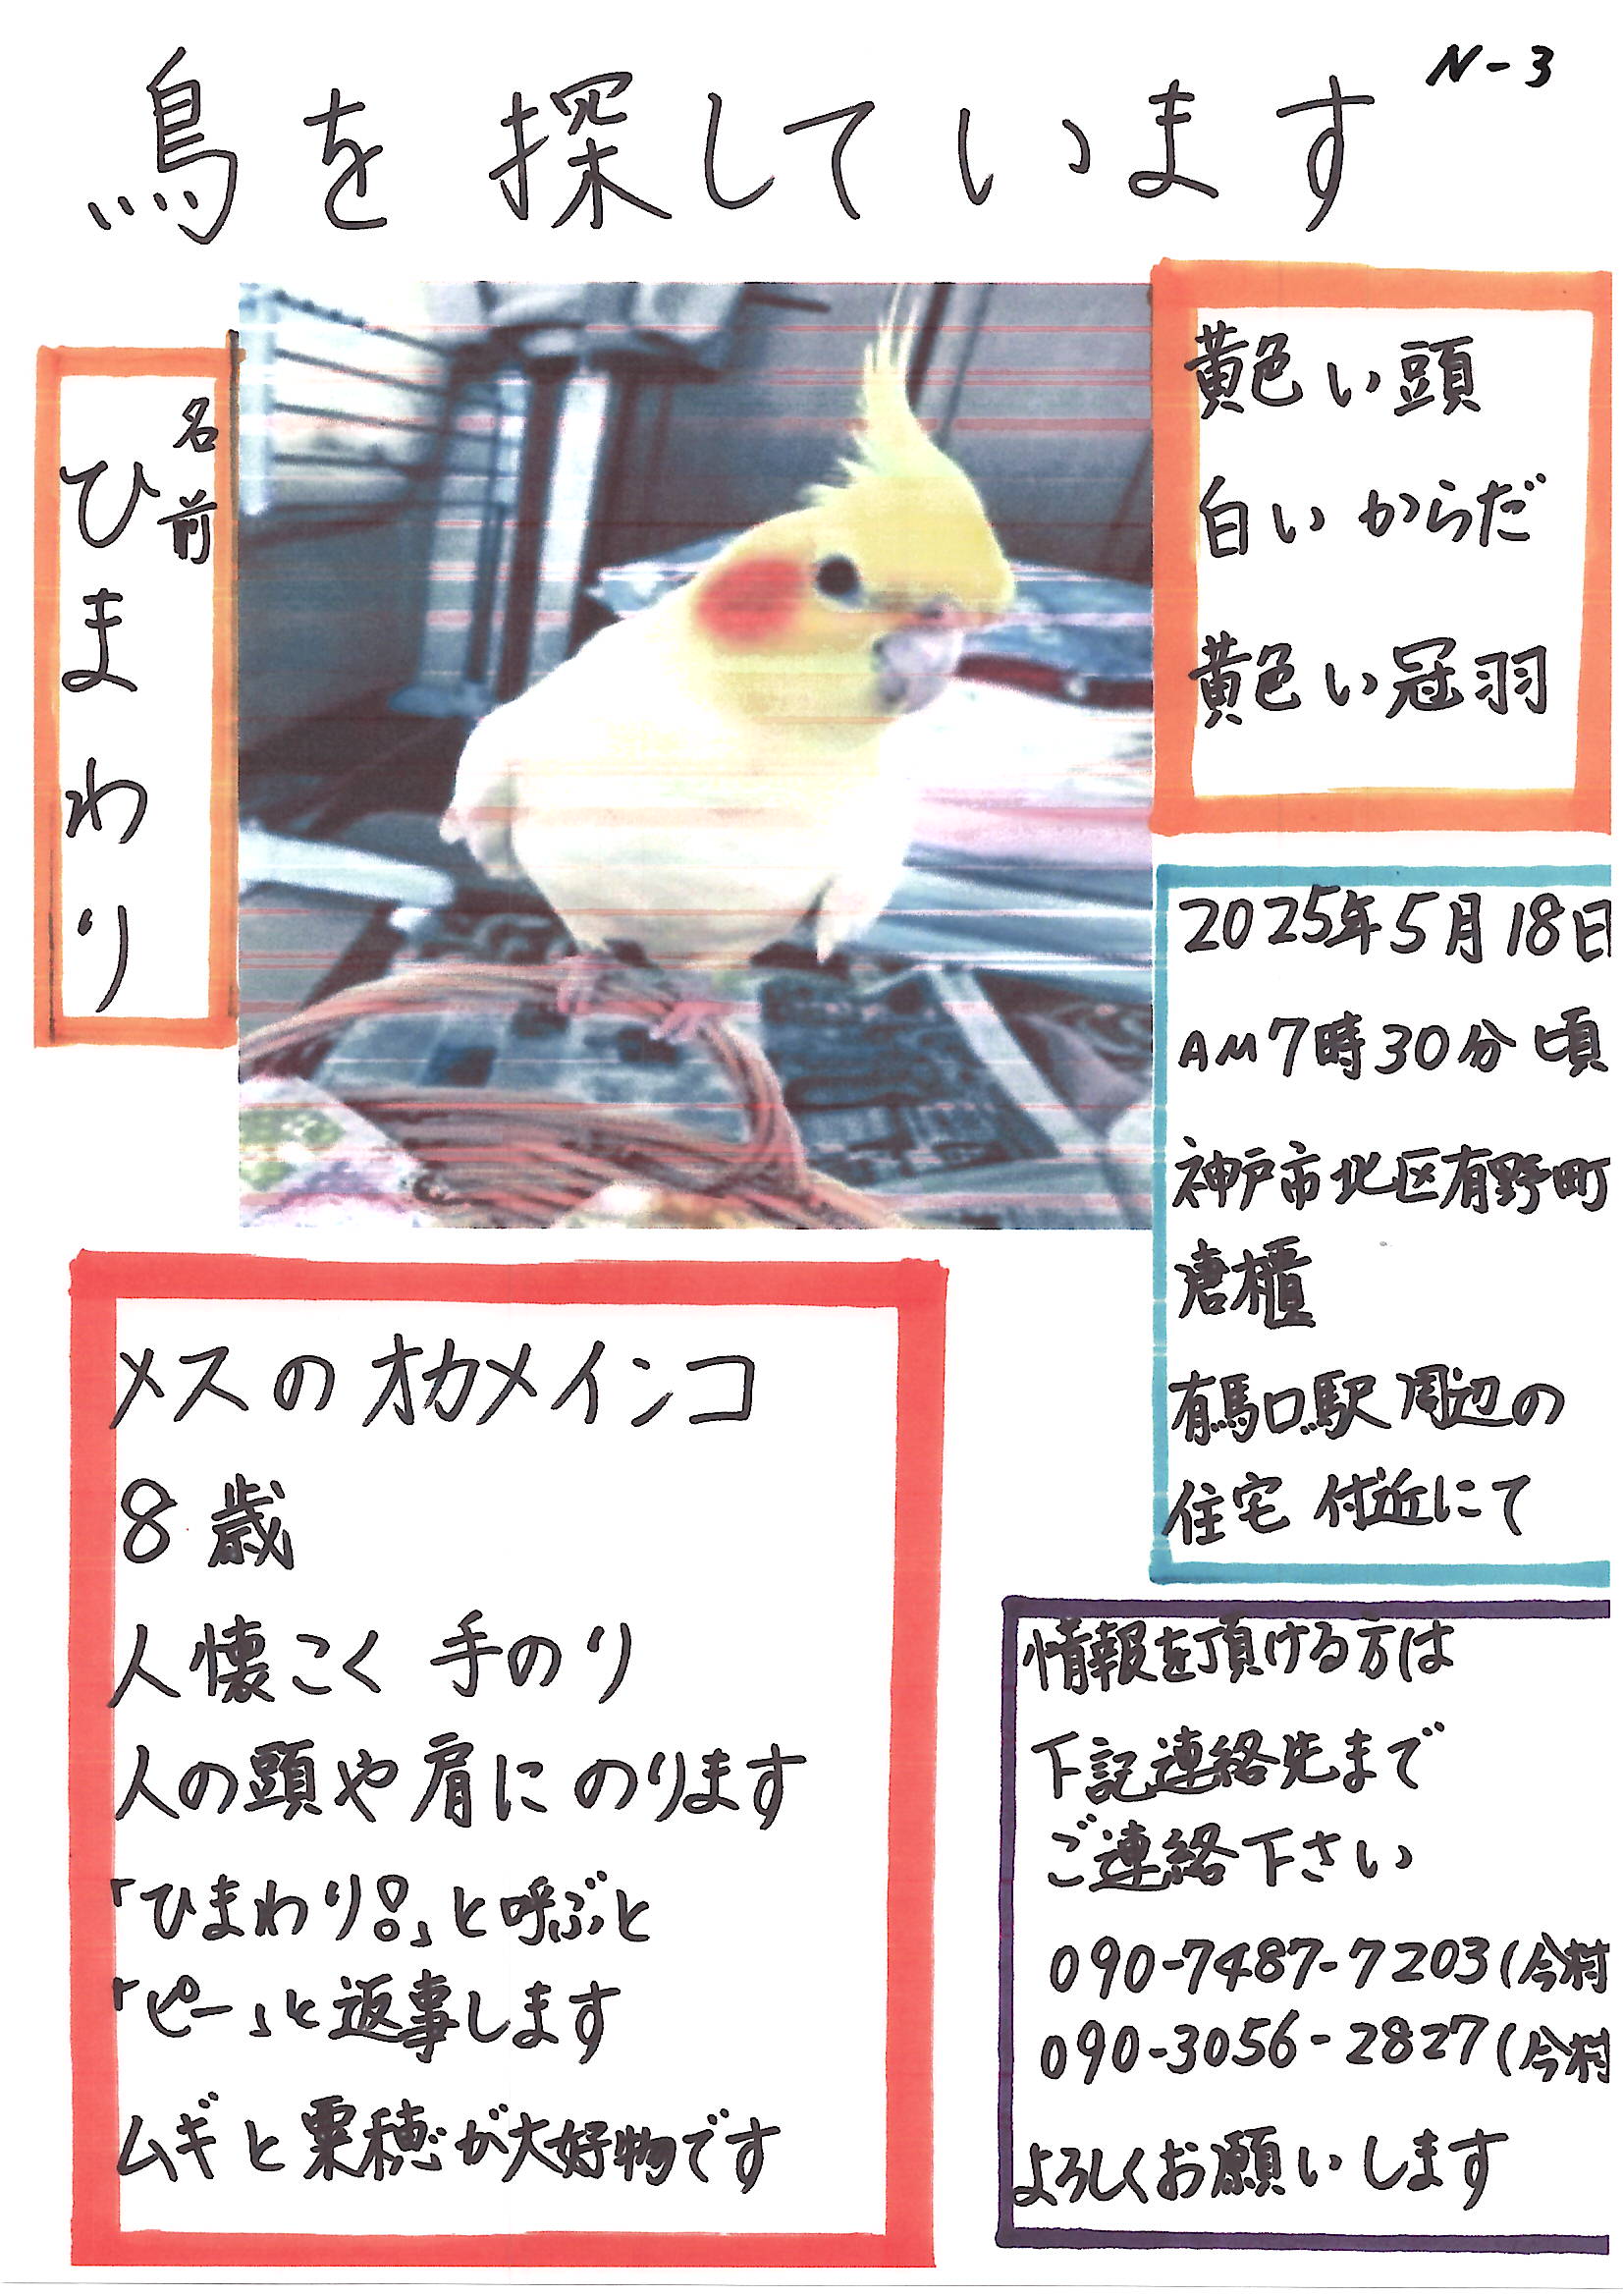 N-3
鳥を探しています
名前
ひまわり
黄色い頭
白いからだ
黄色い冠羽
2025年5月18日
AM7時30分頃
神戸市北区有野町
唐櫃
有馬口駅周辺の
住宅付近にて
メスのオカメインコ
8歳
人懐こく 手のり
人の頭や肩にのります
「ひまわり!」と呼ぶと
「ピー」と返事します
ムギと粟穂が大好物です
情報を頂ける方は
下記連絡先まで
ご連絡下さい
090-7487-7203(今村
090-3056-2827(今村
よろしくお願いします